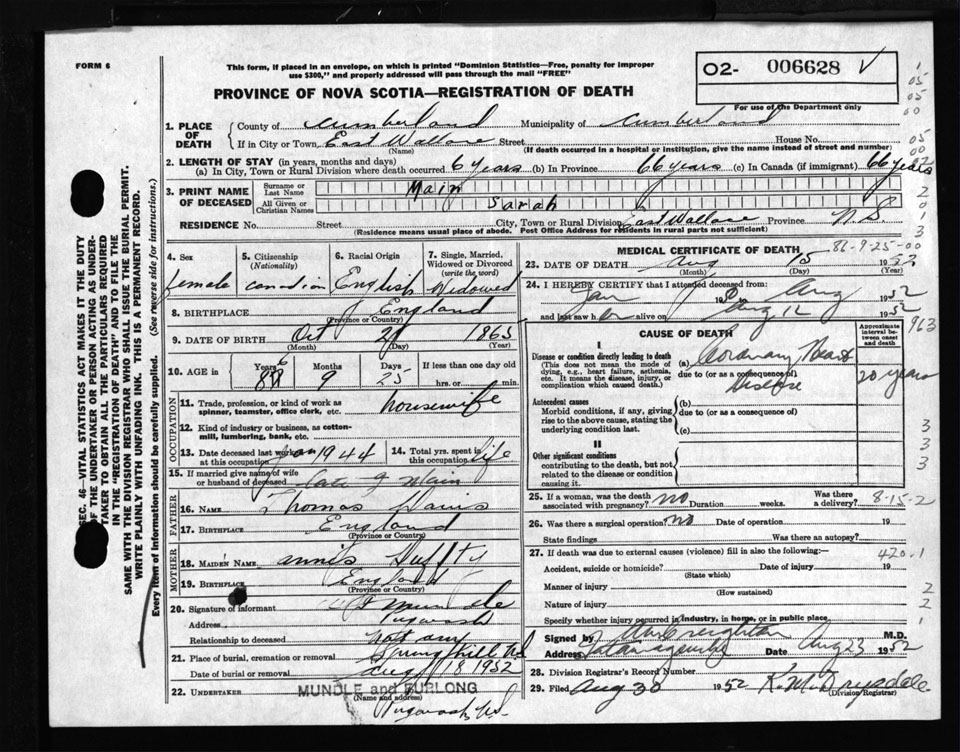 FORM 6
This form, if placed in an envelope, on which is printed "Dominion Statistics—Free, penalty for improper
use $300," and properly addressed will pass through the mail "FREE"
O2- 006628
PROVINCE OF NOVA SCOTIA—REGISTRATION OF DEATH
For use of the Department only
1. PLACE OF DEATH County of Cumberland Municipality of Cumberland
If in City or Town, East Wallace Street House No.
(Name) (If death occurred in a hospital or institution, give the name instead of street and number)
2. LENGTH OF STAY (in years, months and days)
(a) In City, Town or Rural Division where death occurred 6 years (b) In Province 66 years (c) In Canada (if immigrant) 66 years
3. PRINT NAME OF DECEASED Surname or Last Name Main
All Given or Christian Names Sarah
RESIDENCE No. Street City, Town or Rural Division East Wallace Province N.S.
(Residence means usual place of abode. Post Office Address for residents in rural parts not sufficient)
4. Sex female
5. Citizenship (Nationality) canadian
6. Racial Origin English
7. Single, Married, Widowed or Divorced (write the word) Widowed
8. BIRTHPLACE England
(Province or Country)
9. DATE OF BIRTH Oct 21 1865
(Month) (Day) (Year)
10. AGE in Years 86 Months 9 Days 25 If less than one day old
hrs. or min.
OCCUPATION
11. Trade, profession, or kind of work as spinner, teamster, office clerk, etc. housewife
12. Kind of industry or business, as cotton-mill, lumbering, bank, etc.
13. Date deceased last worked at this occupation Jan 1944
14. Total yrs. spent in this occupation life
15. If married give name of wife or husband of deceased Late J Main
FATHER
16. NAME Thomas Davis
17. BIRTHPLACE England
(Province or Country)
MOTHER
18. MAIDEN NAME
19. BIRTHPLACE England
(Province or Country)
20. Signature of informant Mundle
Address Pugwash
Relationship to deceased not any
21. Place of burial, cremation or removal Springhill NS
Date of burial or removal Aug 18 1952
22. UNDERTAKER MUNDLE and BURLONG
(Name and Address)
Pugwash N.S.
MEDICAL CERTIFICATE OF DEATH
86-9-25-00
23. DATE OF DEATH Aug 15 1952
(Month) (Day) (Year)
24. I HEREBY CERTIFY that I attended deceased from:
Jan Aug 1952
and last saw h er alive on Aug 12 1952
963
CAUSE OF DEATH
Approximate interval between onset and death
I
Disease or condition directly leading to death
(This does not mean the mode of dying, e.g., heart failure, asthenia, etc. It means the disease, injury, or complication which caused death.)
(a) Coronary Heart
due to (or as a consequence of)
Disease 20 years
Antecedent causes
Morbid conditions, if any, giving rise to the above cause, stating the underlying condition last.
(b)
due to (or as a consequence of)
(c)
II
Other significant conditions
contributing to the death, but not related to the disease or condition causing it.
25. If a woman, was the death associated with pregnancy? No Duration weeks. Was there a delivery?
8-15-2
26. Was there a surgical operation? No Date of operation 19
State findings Was there an autopsy?
27. If death was due to external causes (violence) fill in also the following:—
420.1
Accident, suicide or homicide? Date of injury 19
(State which)
Manner of injury
(How sustained)
Nature of injury
Whether injury occurred in industry, in home, or in public place
Signed by Creighton M.D.
Address Tatamagouche Date Aug 23 1952
28. Division Registrar's Record Number
29. Filed Aug 30 1952 K. M. Drysdale
(Division Registrar)
SEC. 46—VITAL STATISTICS ACT MAKES IT THE DUTY
OF THE UNDERTAKER OR PERSON ACTING AS UNDER-
TAKER TO OBTAIN ALL THE PARTICULARS REQUIRED
IN THE "REGISTRATION OF DEATH" AND TO FILE THE
SAME WITH THE DIVISION REGISTRAR WHO SHALL ISSUE THE BURIAL PERMIT.
WRITE PLAINLY WITH UNFADING INK. THIS IS A PERMANENT RECORD.
Every item of information should be carefully supplied. (See reverse side for instructions.)